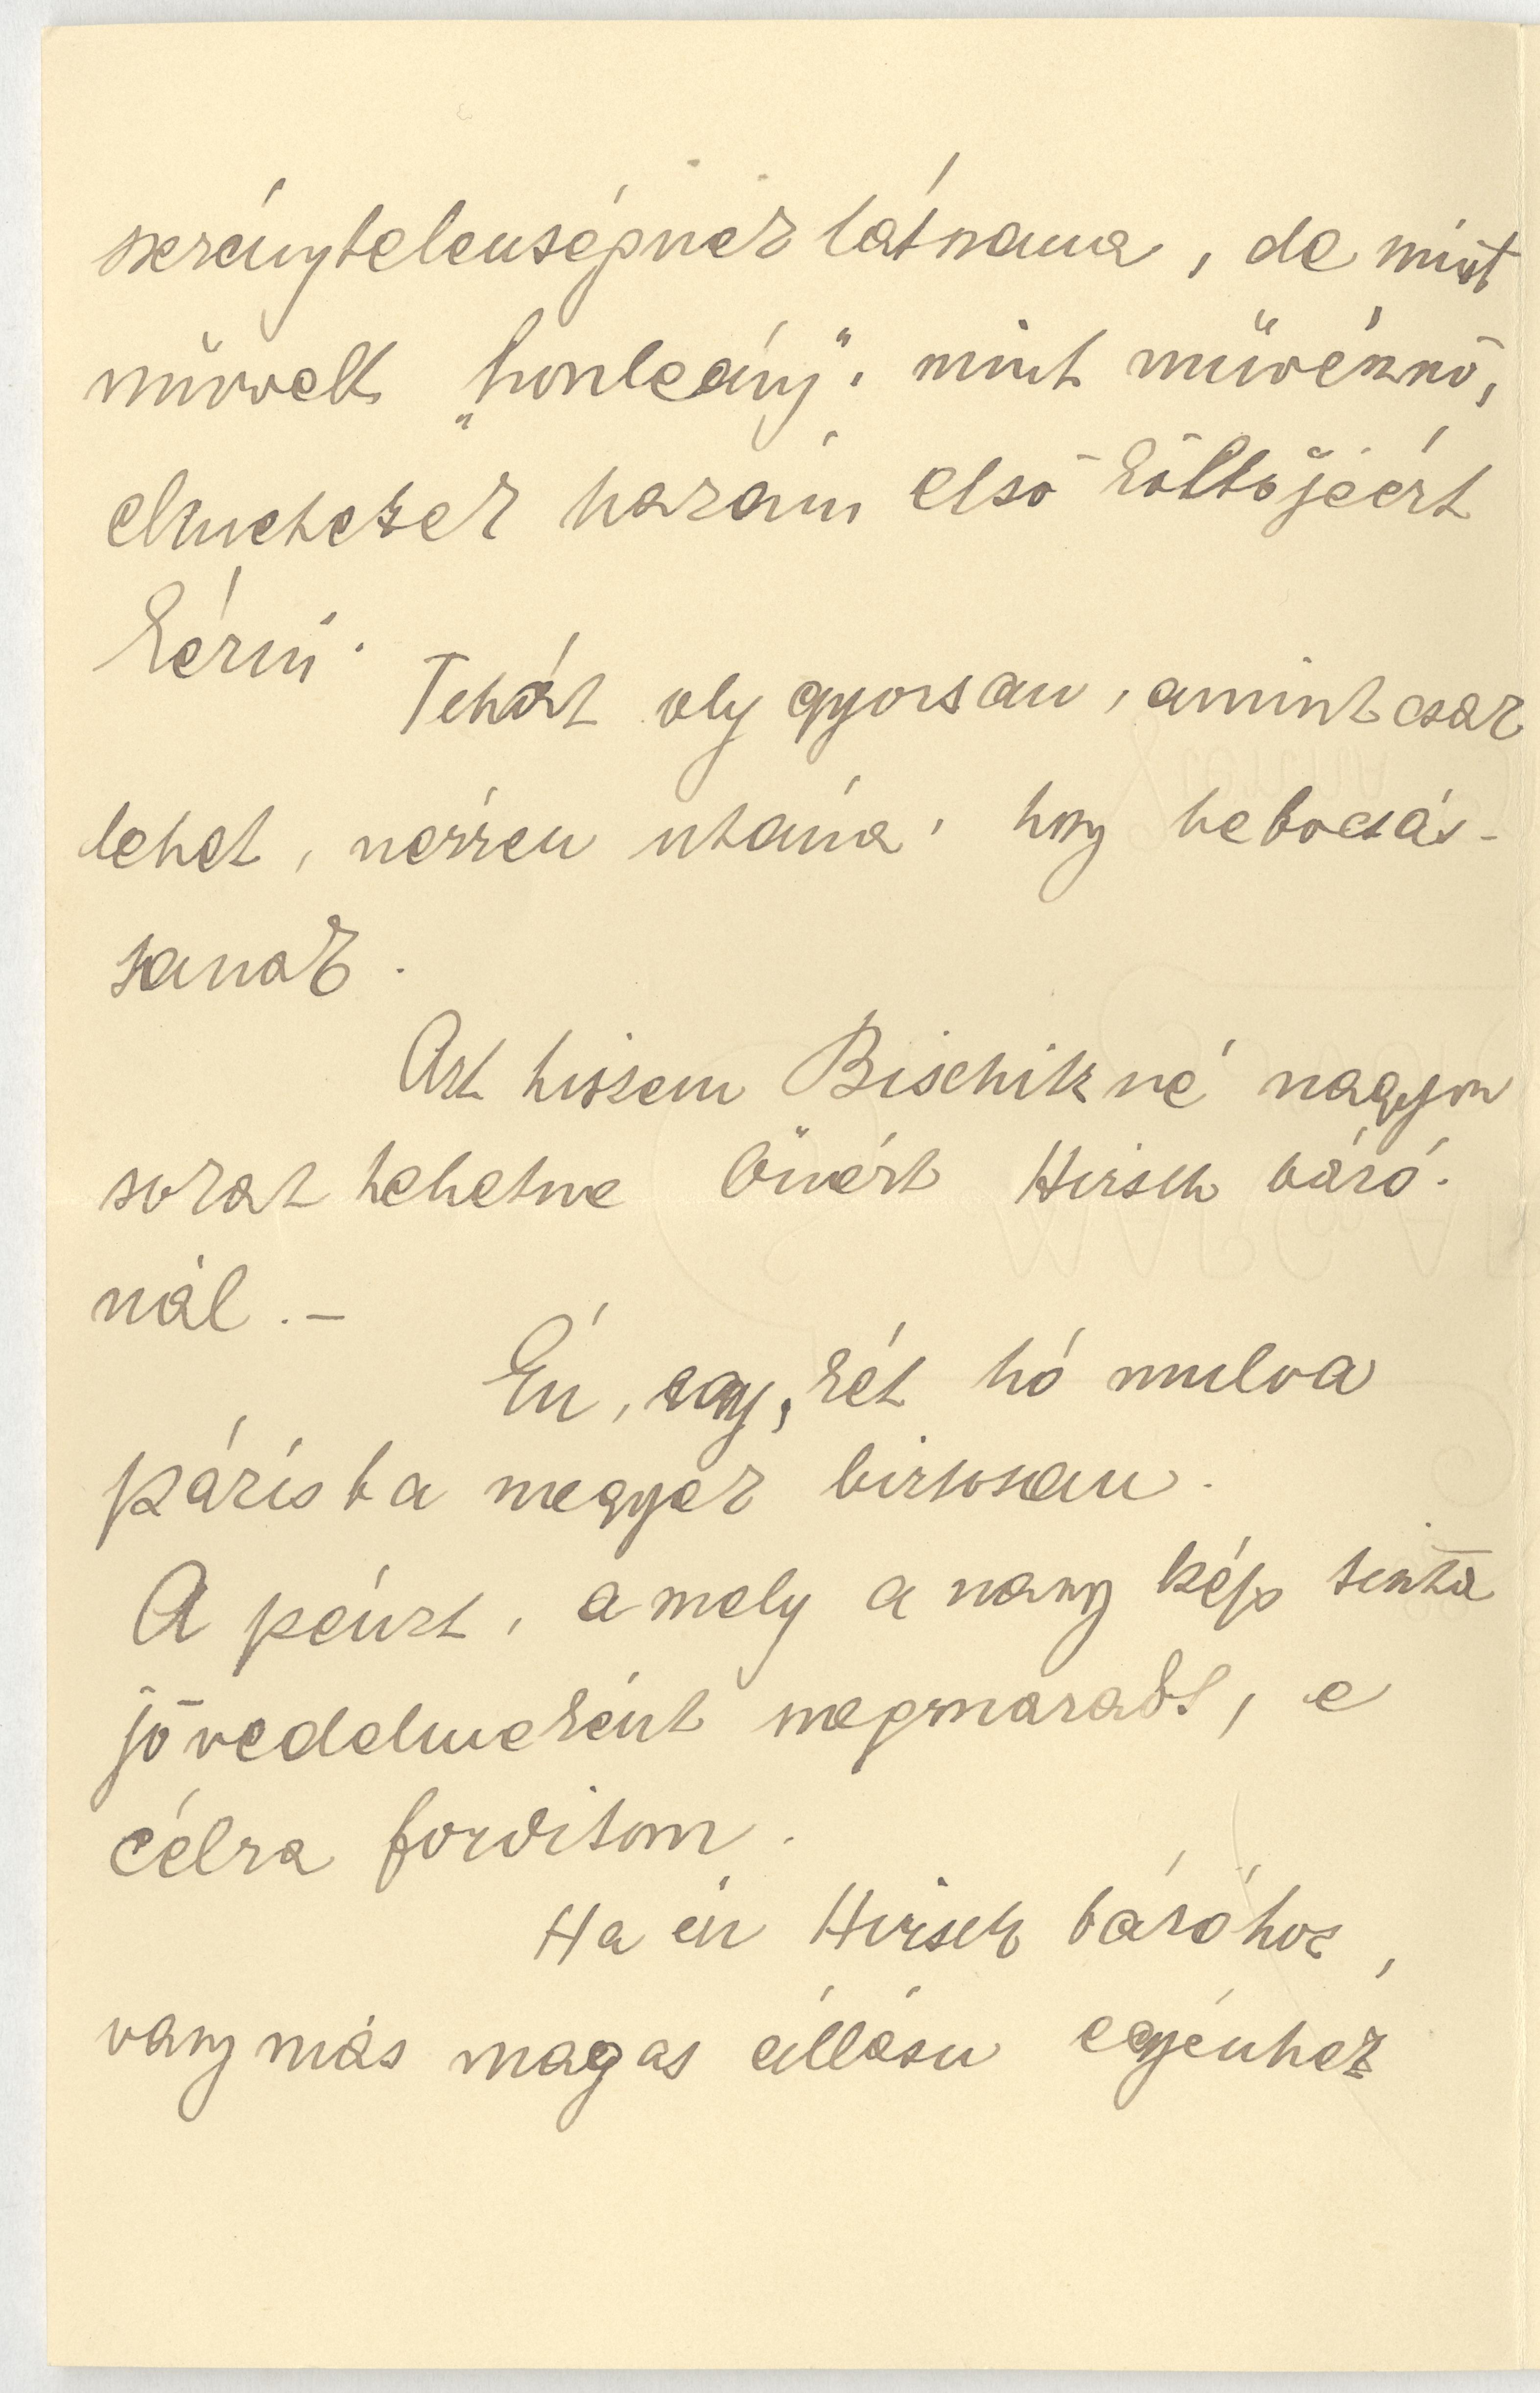 szerénytelenségnek látszana, de mint
művelt „honleány”, mint művésznő,
elmehetek hazám első költőjéért
kérni.
Tehát oly gyorsan, amint csak
lehet, nézzen utána, hogy bebocsás-
sanak.
Azt hiszem Bischitzné nagyon
sokat tehetne Önért Hirsch báró-
nál. –
Én, egy, két hó mulva
Párisba megyek biztosan.
A pénzt, amely a nagy kép tiszta
jövedelmeként megmaradt, e
célra fordítom.
Ha én Hirsch báróhoz,
vagy más magas állásu egyénhez